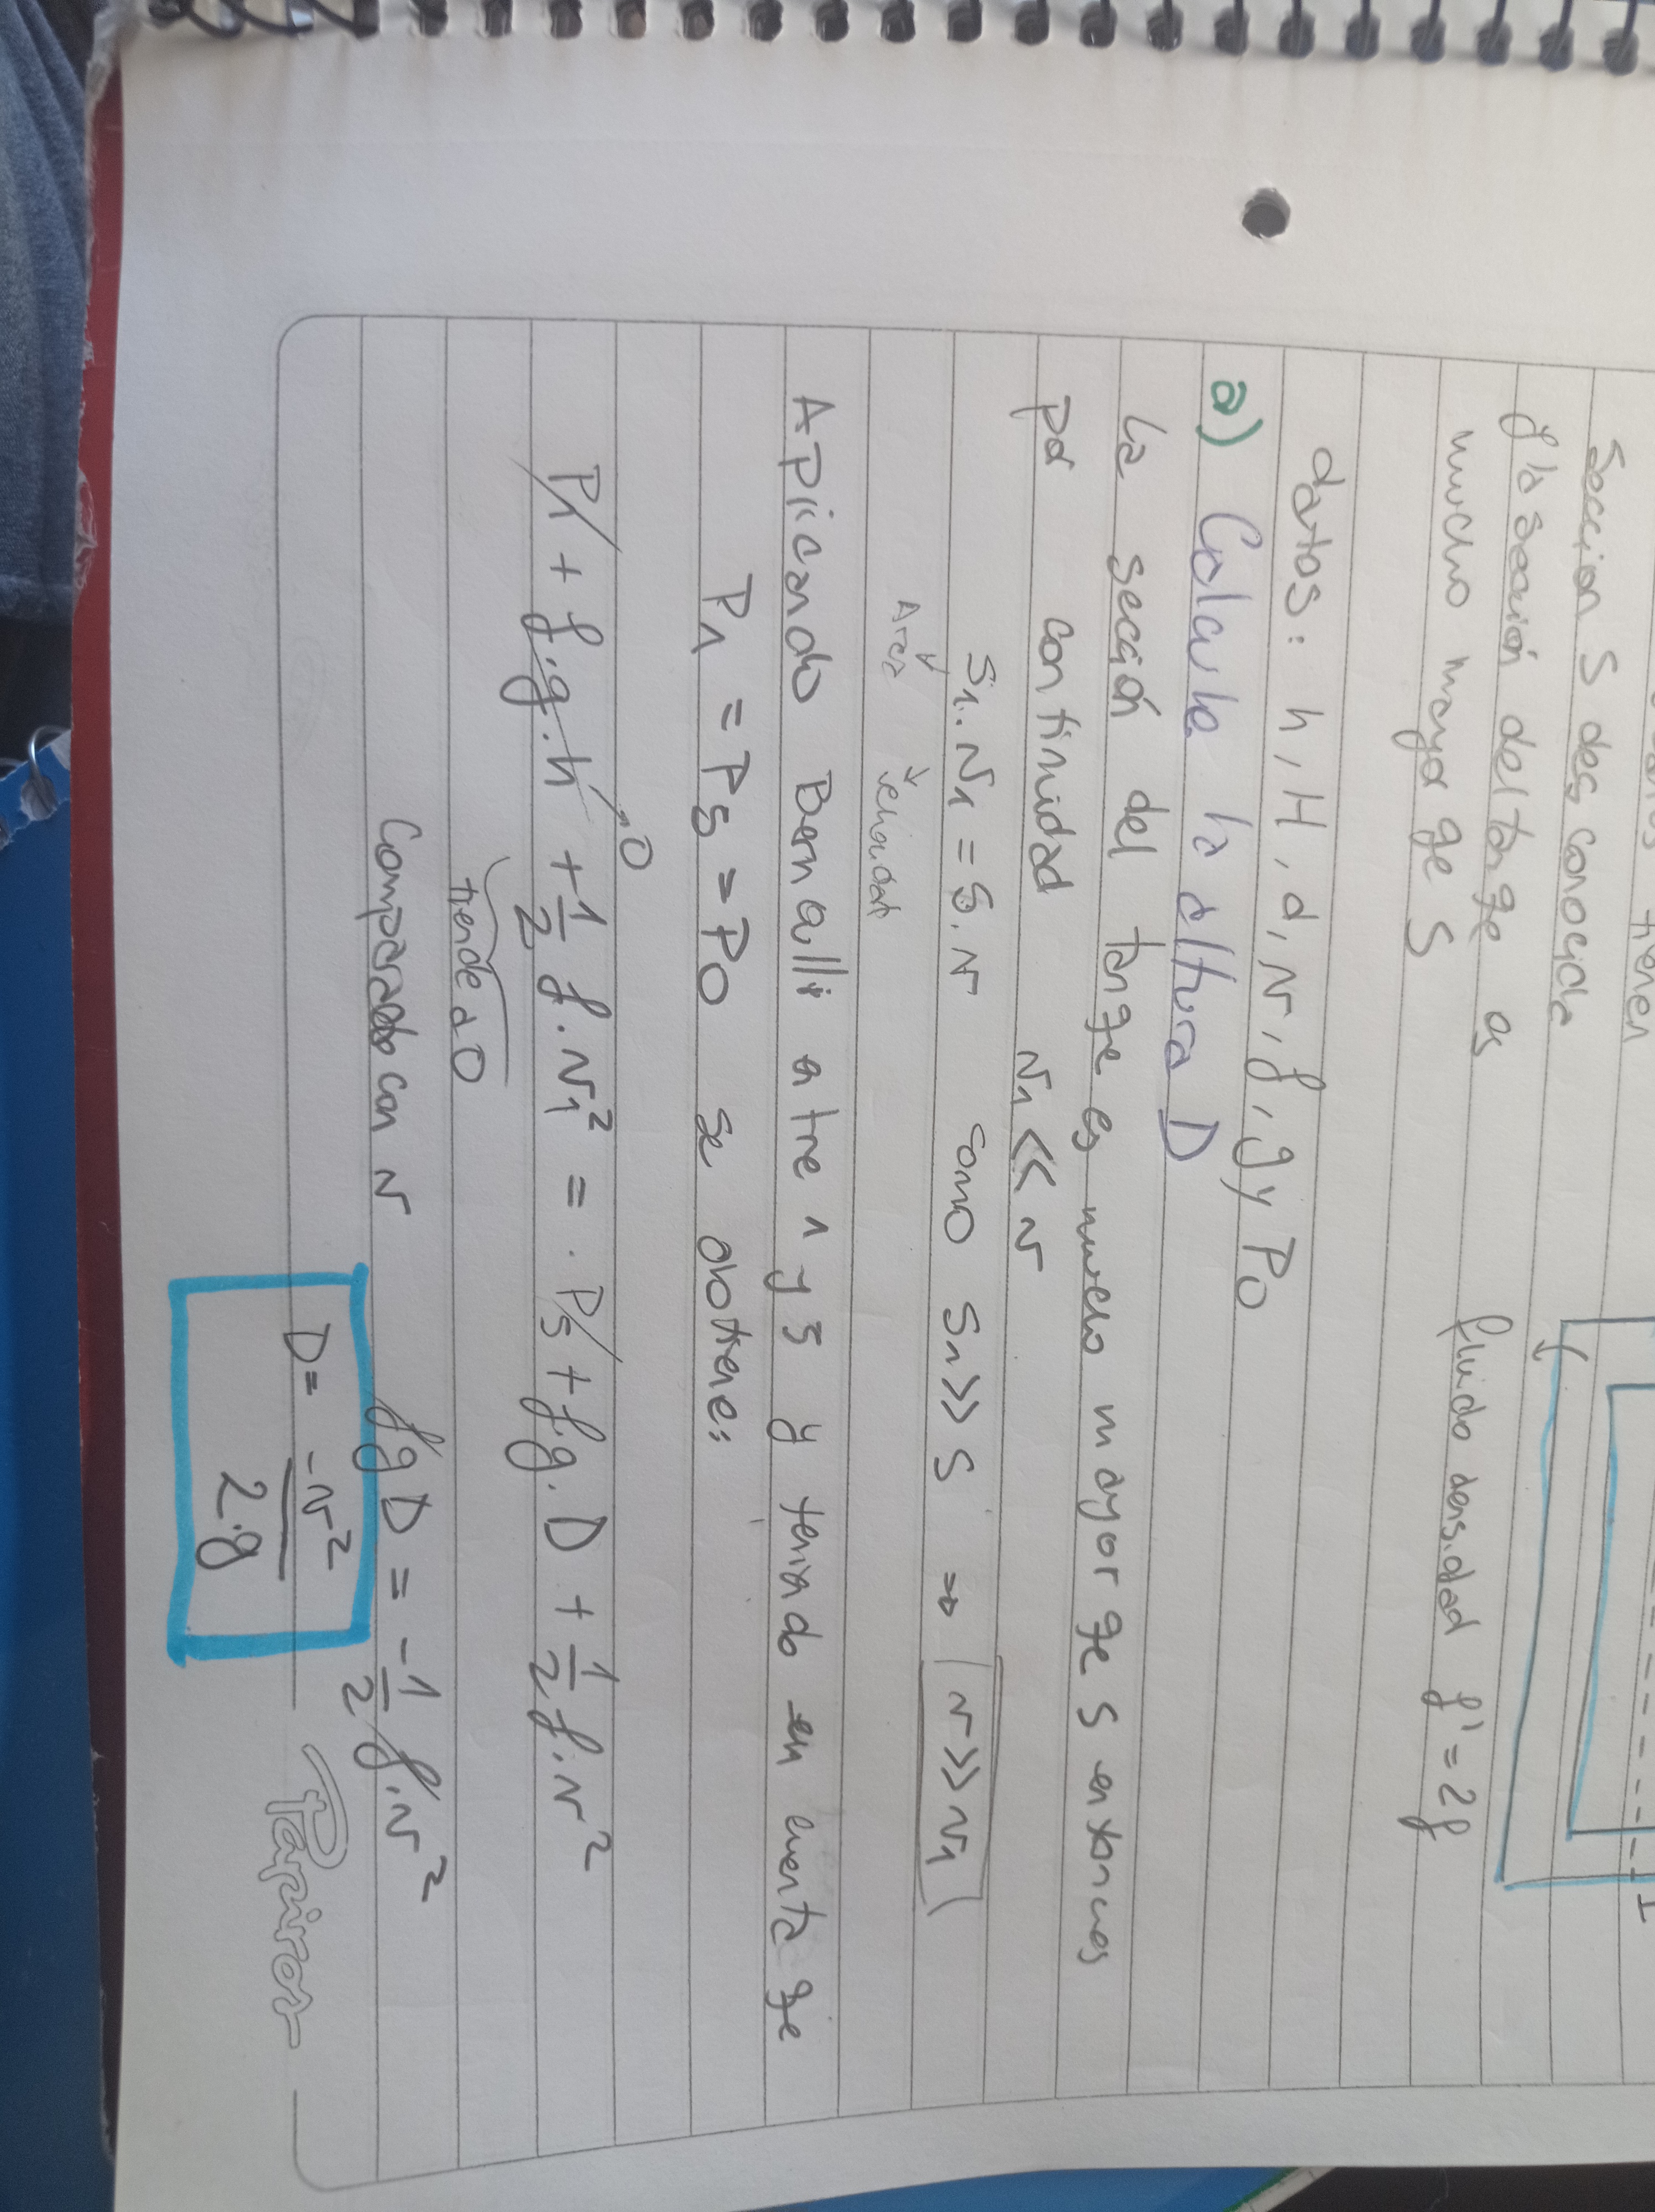 tienen
Sección S des conocida
y la sección del tanqe es
mucho mayor qe S
fluido densidad ρ' = 2ρ
datos: h, H, d, v, ρ, g y P0
a) Calcule la altura D
La sección del tanqe es mucho mayor qe S entonces
por continuidad v1 << v
S1. v1 = S. v como S1 >> S ⇒ v >> v1
Area velocidad
Aplicando Bernoulli entre 1 y 5 y teniendo en cuenta qe
P1 = P5 = P0 se obtiene:
P1 + ρ.g.h + 1/2 ρ.v1² = . P5 + ρ.g.D + 1/2 ρ.v²
0
tiende a 0
Comparado con v
ρgD = -1/2 ρ.v²
D = -v²/2.g
Papiros